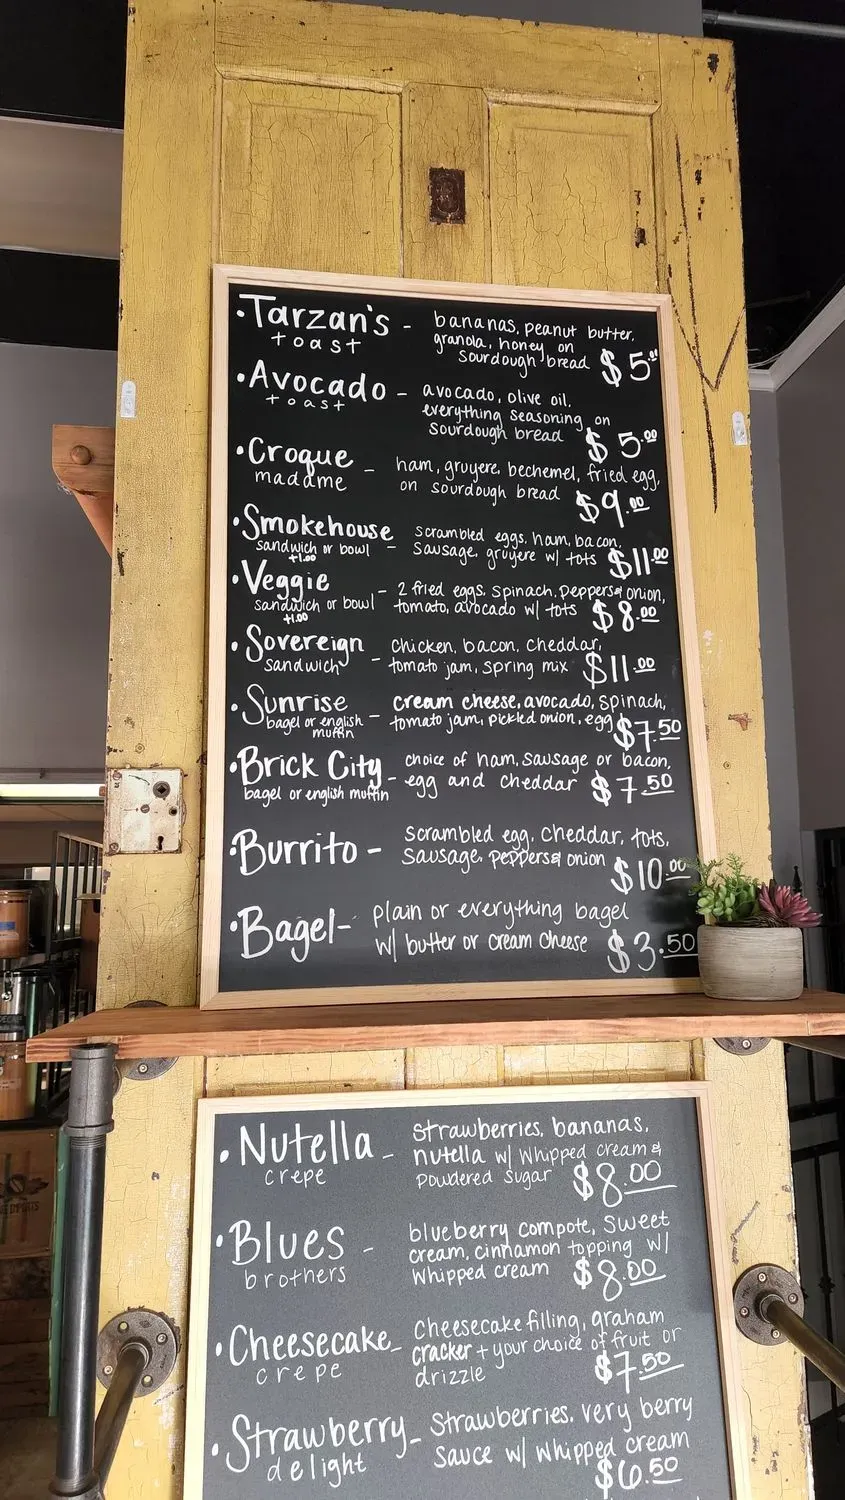 •Tarzan's - bananas, peanut butter,
toast granola, honey on
sourdough bread $5.00
•Avocado - avocado, olive oil,
toast everything seasoning on
sourdough bread $5.00
•Croque - ham, gruyere, bechemel, fried egg,
madame on sourdough bread $9.00
•Smokehouse - scrambled eggs, ham, bacon,
sandwich or bowl sausage, gruyere w/ tots $11.00
+1.00
•Veggie - 2 fried eggs, spinach, peppers & onion,
sandwich or bowl tomato, avocado w/ tots $8.00
+1.00
•Sovereign - chicken, bacon, cheddar,
sandwich tomato jam, spring mix $11.00
•Sunrise - cream cheese, avocado, spinach,
bagel or english tomato jam, pickled onion, egg $7.50
muffin
•Brick City - choice of ham, sausage or bacon,
bagel or english muffin egg and cheddar $7.50
•Burrito - scrambled egg, cheddar, tots,
sausage, peppers & onion $10.00
•Bagel - plain or everything bagel
w/ butter or cream cheese $3.50
•Nutella - strawberries, bananas,
crepe nutella w/ whipped cream &
powdered sugar $8.00
•Blues - blueberry compote, sweet
brothers cream, cinnamon topping w/
whipped cream $8.00
•Cheesecake - cheesecake filling, graham
crepe cracker + your choice of fruit or
drizzle $7.50
•Strawberry - strawberries, very berry
delight sauce w/ whipped cream
$6.50